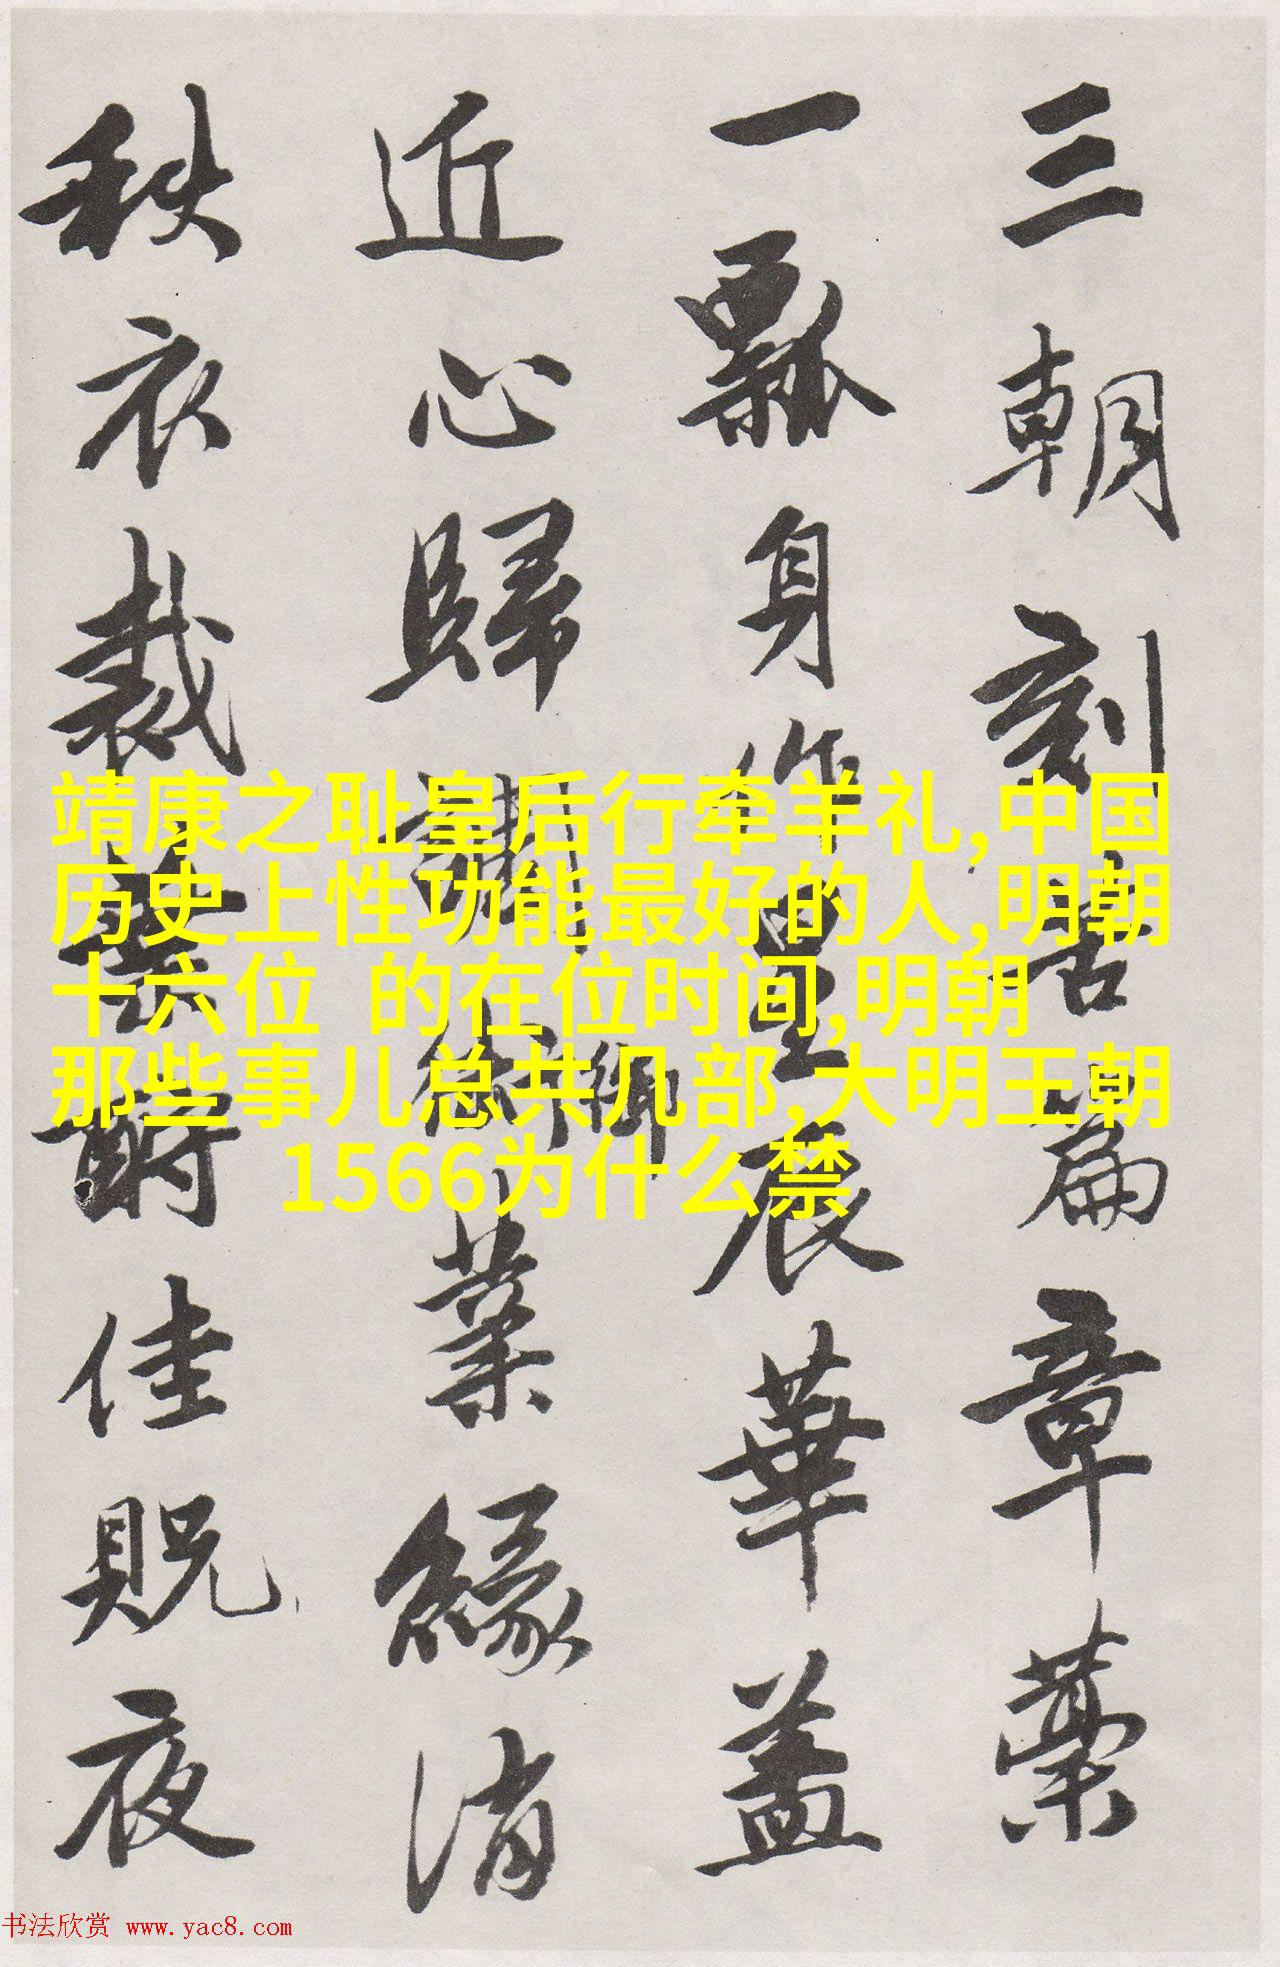 三朝刻苦篇章藁
一瓢身作星辰華蓋
近心歸講御業緣消
秩衣裁
酹佳貺夜
靖康之耻皇后行牵羊礼,中国
历史上性功能最好的人,明朝
十六位 的在位时间,明朝
那些事儿总共几部,大明王朝
1566为什么禁
书法欣赏 www.yac8.com